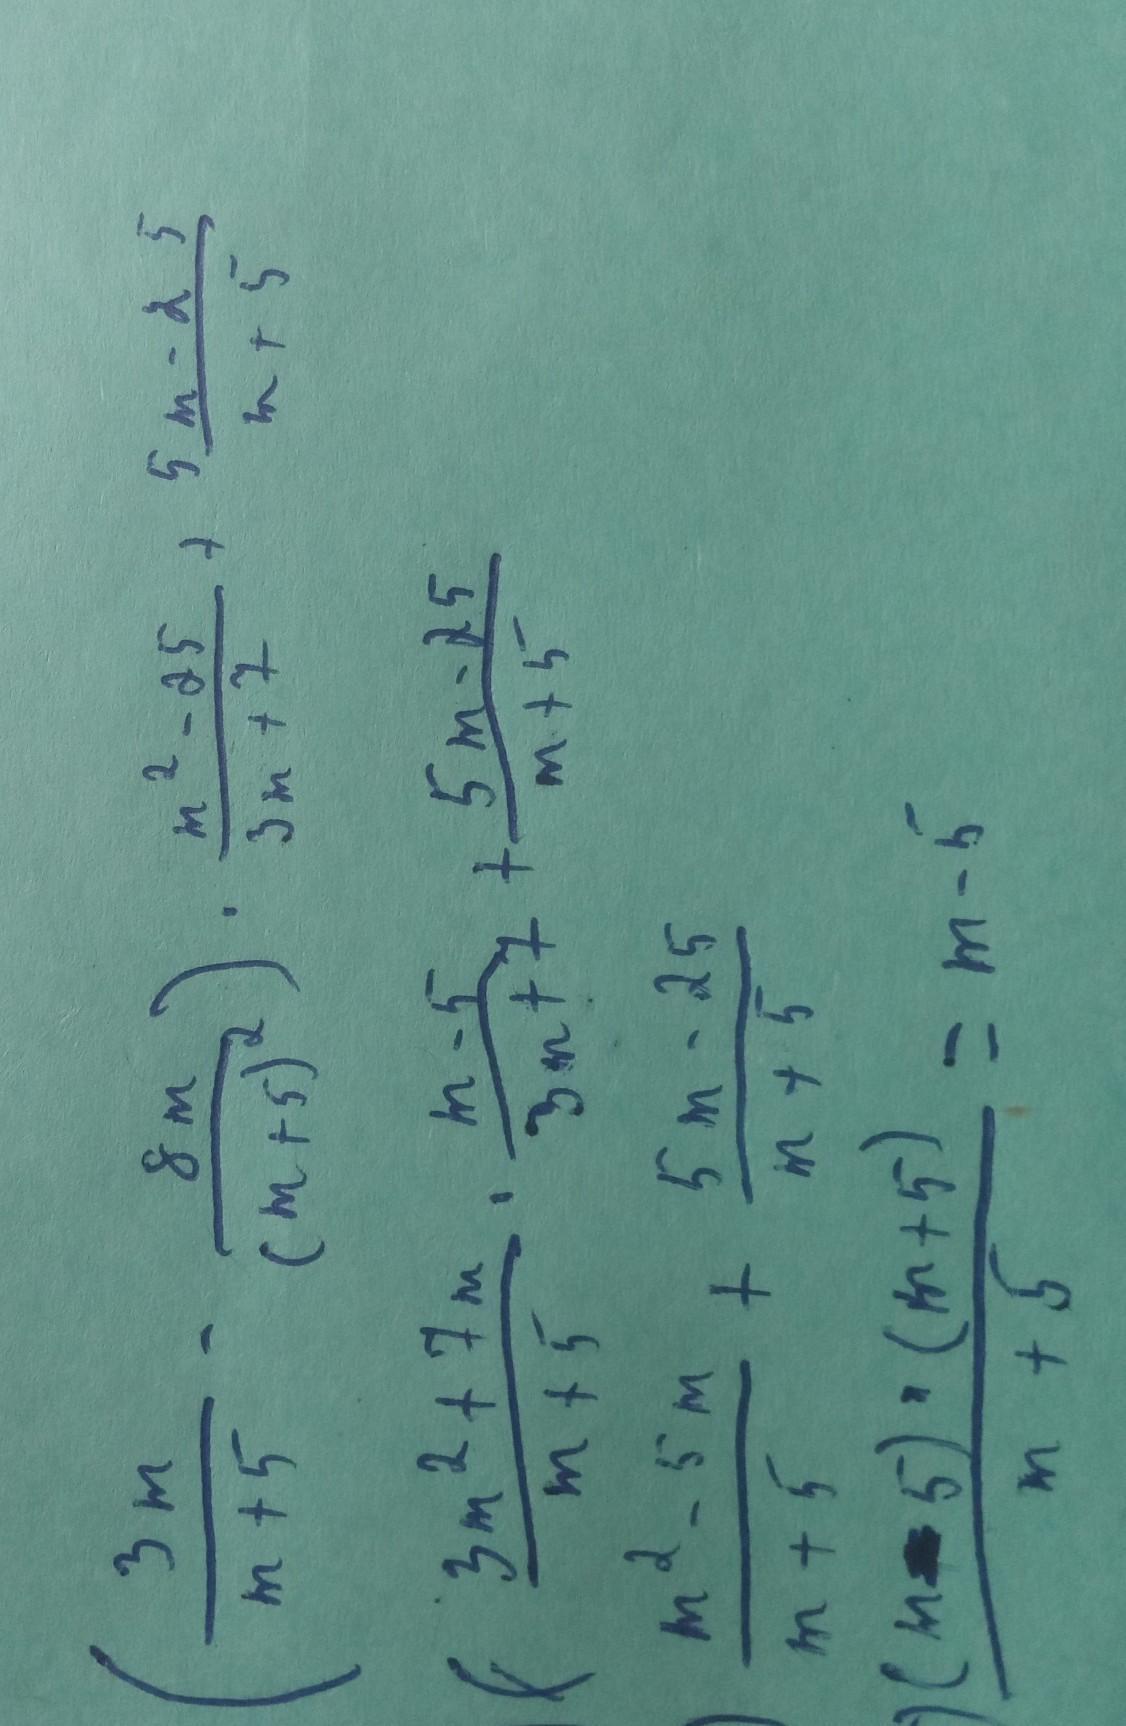 ( 3m / m+5 - 8m / (m+5)² ) · m²-25 / 3m+7 + 5m-25 / m+5
( 3m²+7m / m+5 · m-5 / 3m+7 + 5m-25 / m+5
) m²-5m / m+5 + 5m-25 / m+5
) (m-5)·(m+5) / m+5 = m-5